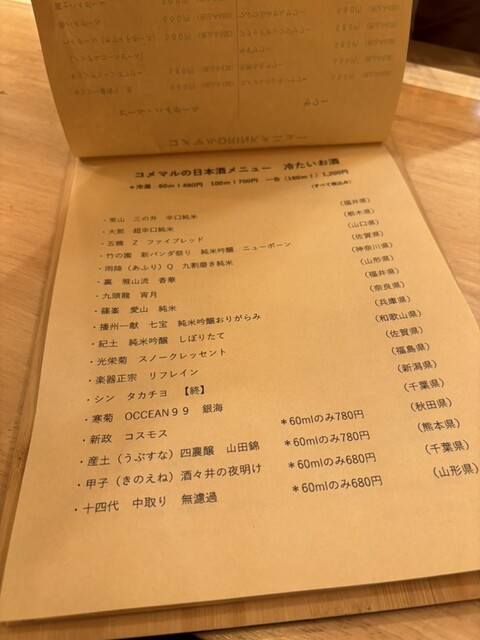 コメマルの日本酒メニュー 冷たいお酒
＊冷酒 60ml480円 100ml700円 一合(180ml)1,200円
(すべて税込み)
・常山 三の升 辛口純米 (福井県)
・大那 超辛口純米 (栃木県)
・五橋 Z ファイブレッド (山口県)
・竹の園 新パンダ祭り 純米吟醸 ニューボーン (佐賀県)
・雨降（あふり）Q 九割磨き純米 (神奈川県)
・裏 雅山流 香華 (山形県)
・九頭龍 宵月 (福井県)
・篠峯 愛山 純米 (奈良県)
・播州一献 七宝 純米吟醸おりがらみ (兵庫県)
・紀土 純米吟醸 しぼりたて (和歌山県)
・光栄菊 スノークレッセント (佐賀県)
・楽器正宗 リフレイン (福島県)
・シン タカチヨ 【終】 (新潟県)
・寒菊 OCCEAN99 銀海 (千葉県)
・新政 コスモス ＊60mlのみ780円 (秋田県)
・産土（うぶすな）四農醸 山田錦 ＊60mlのみ780円 (熊本県)
・甲子（きのえね）酒々井の夜明け ＊60mlのみ680円 (千葉県)
・十四代 中取り 無濾過 ＊60mlのみ680円 (山形県)